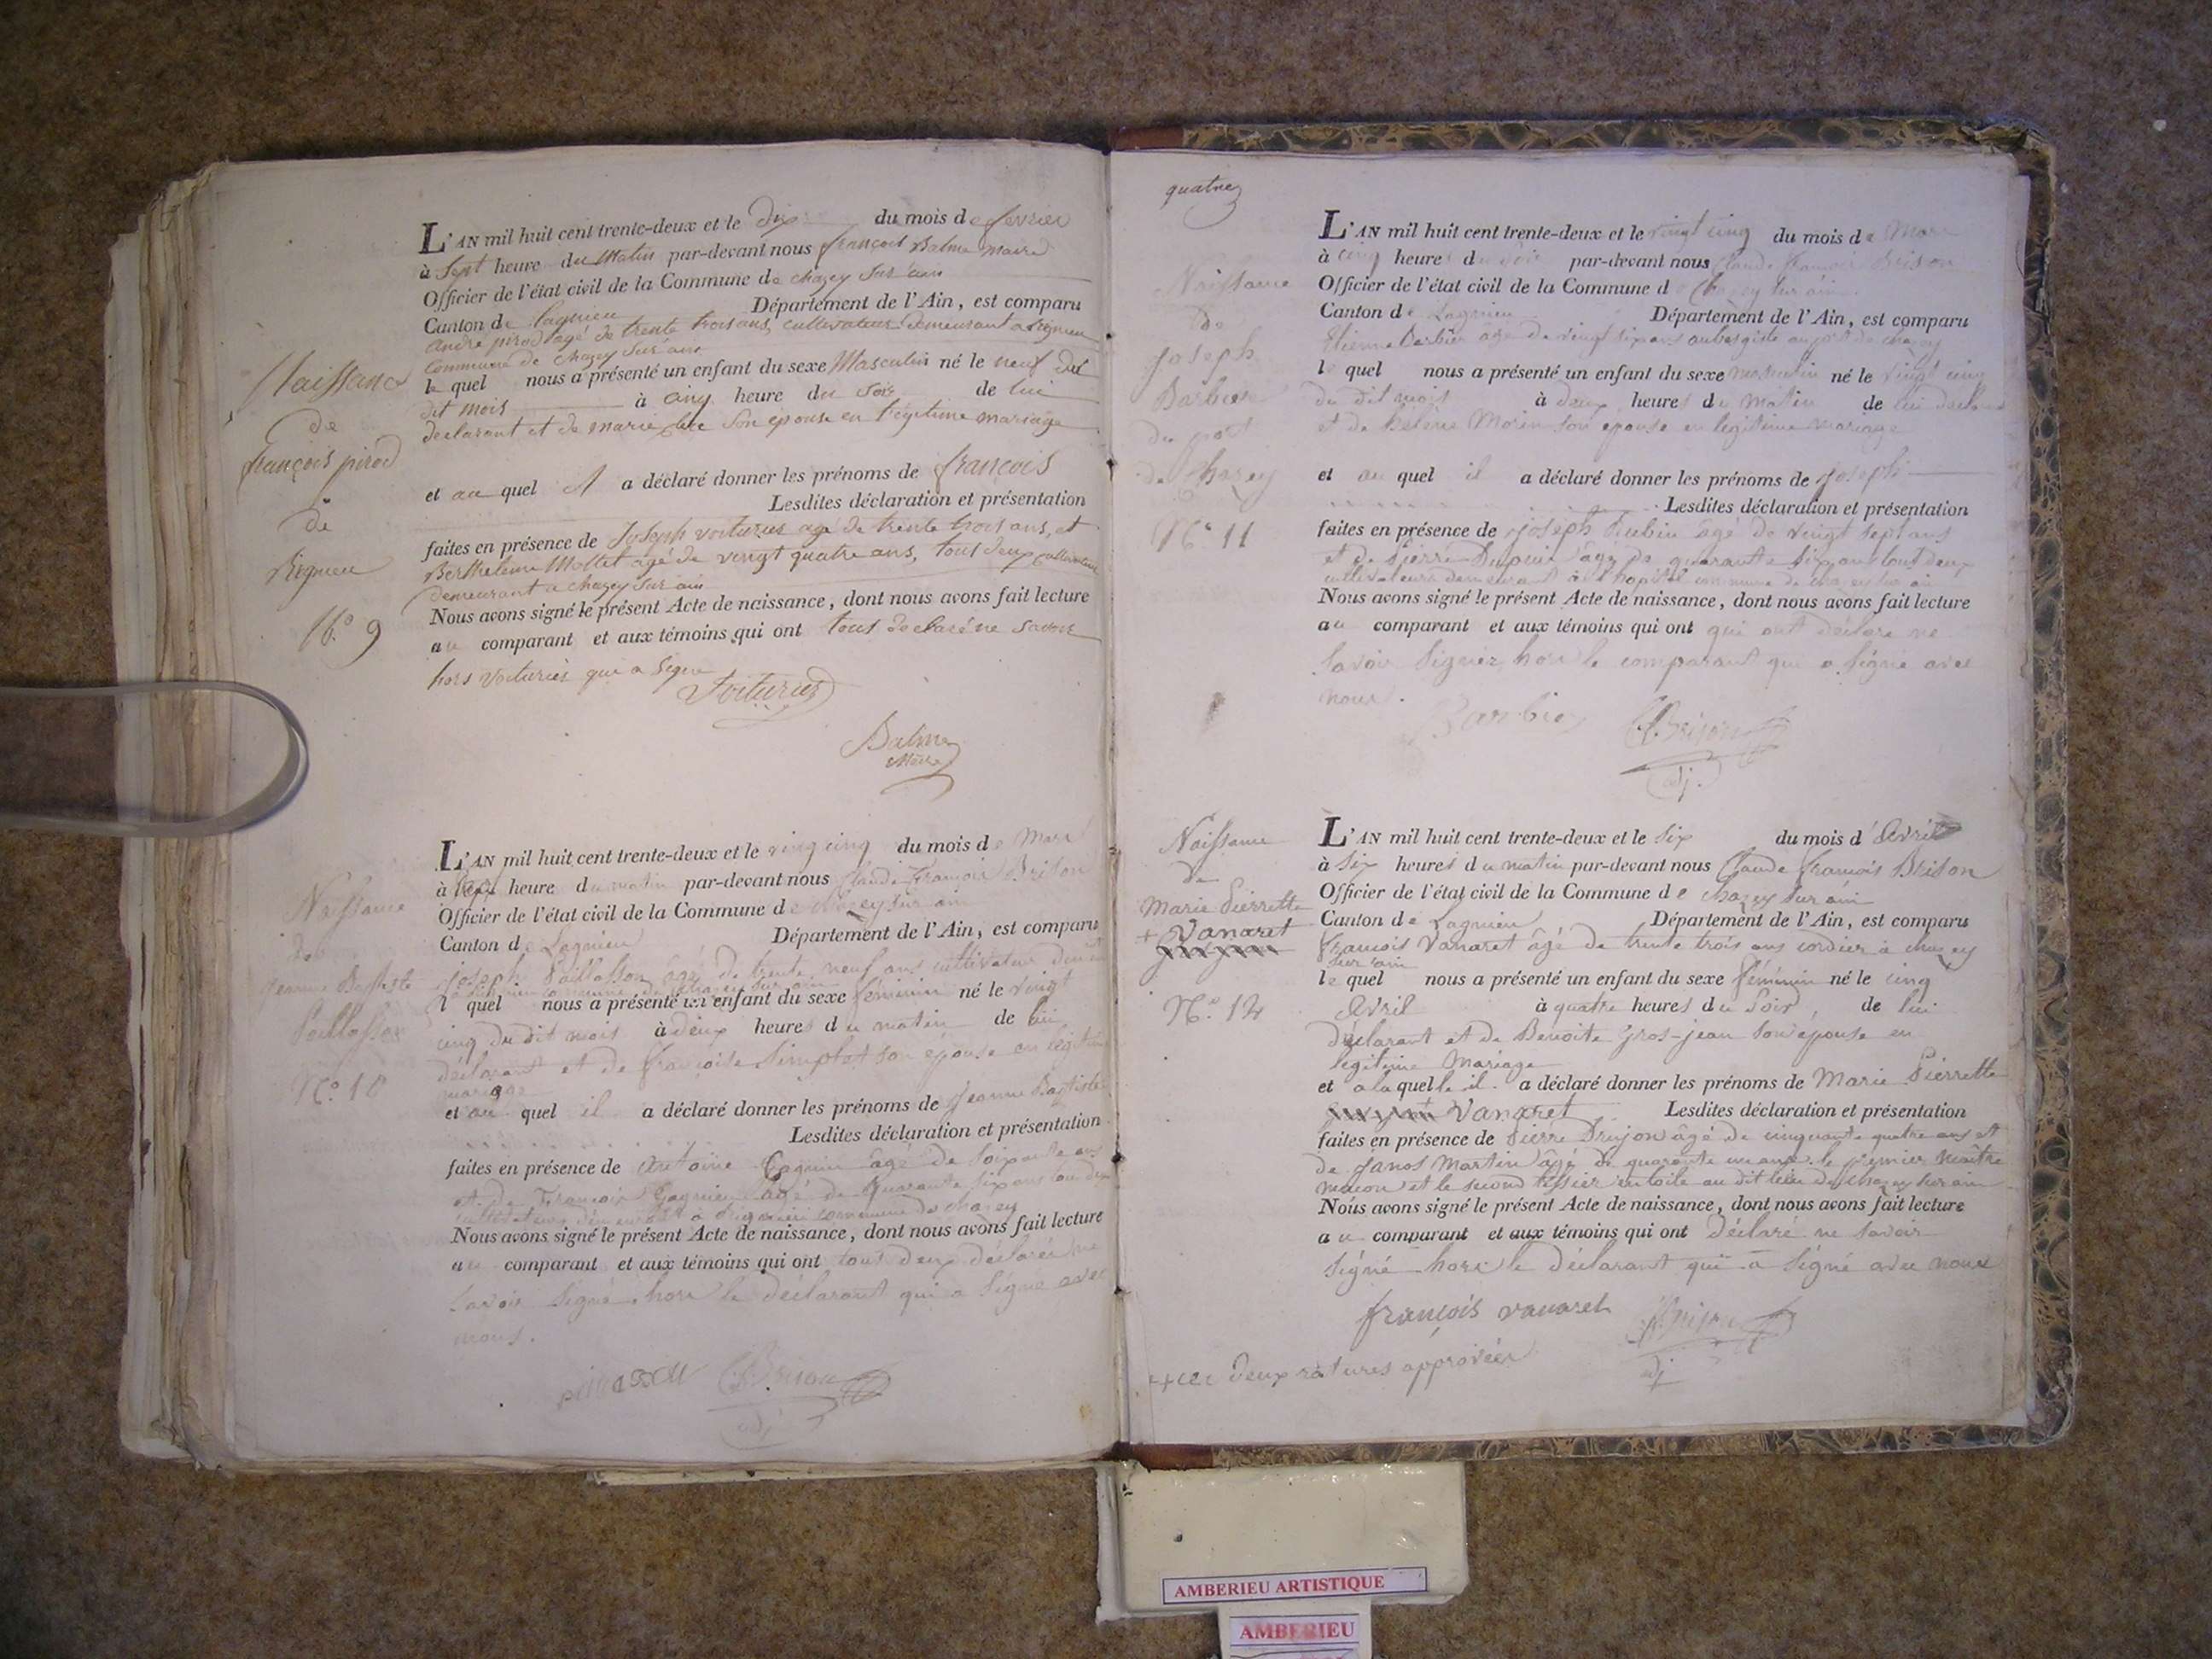 Naissance
de
françois pirod
de
Rignieu
N.º 9
L'AN mil huit cent trente-deux et le Dix du mois de fevrier
à Sept heure du Matin par-devant nous françois Balme maire
Officier de l'état civil de la Commune de chazey Sur ain
Canton de lagnieu Département de l'Ain, est comparu
andré pirod agé de trente trois ans, cultivateur demeurant a Rignieu
commune de chazey Sur ain
le quel nous a présenté un enfant du sexe Masculin né le neuf du
dit mois à cinq heure du soir de lui
declarant et de marie son epouse en legitime mariage
et au quel il a déclaré donner les prénoms de francois
Lesdites déclaration et présentation
faites en présence de Joseph voiturier agé de trente trois ans, et
Berthelemi Mollet agé de vingt quatre ans, tous deux cultivateurs
demeurant a chazey sur ain
Nous avons signé le présent Acte de naissance, dont nous avons fait lecture
au comparant et aux témoins qui ont tous declaré ne savoir
hors voiturier qui a signé
Voiturier
Balme
Maire
Naissance
de
Jeanne Baptiste
Paillasson
N.º 10
L'AN mil huit cent trente-deux et le vingt cinq du mois de Mars
à heure du matin par-devant nous Claude François Brison
Officier de l'état civil de la Commune de chazey sur ain
Canton de Lagnieu Département de l'Ain, est comparu
joseph Paillasson âgé de trente neuf ans cultivateur
commune de chazey sur ain
l quel nous a présenté un enfant du sexe féminin né le vingt
cinq du dit mois à deux heures du matin de lui
déclarant et de françoise Simplot son épouse en légitime
mariage
et au quel il a déclaré donner les prénoms de Jeanne Baptiste
Lesdites déclaration et présentation
faites en présence de Antoine Gagnieu âgé de soixante ans
et de François Gagnieu âgé de quarante six ans tous deux
cultivateurs demeurant à rignieu commune de chazey
Nous avons signé le présent Acte de naissance, dont nous avons fait lecture
au comparant et aux témoins qui ont tous deux déclarés ne
savoir signé hors le déclarant qui a signé avec
nous.
Brison
adj
quatre
Naissance
de
Joseph
Barbier
du port
de Chazey
N.º 11
L'AN mil huit cent trente-deux et le vingt cinq du mois de Mars
à cinq heures du soir par-devant nous Claude François Brison
Officier de l'état civil de la Commune de Chazey sur ain
Canton de Lagnieu Département de l'Ain, est comparu
Etienne Barbier âgé de vingt six ans aubergiste au port de chazey
le quel nous a présenté un enfant du sexe masculin né le vingt cinq
du dit mois à deux heures du matin de lui déclarant
et de Morin son epouse en legitime mariage
et au quel il a déclaré donner les prénoms de Joseph
Lesdites déclaration et présentation
faites en présence de joseph Rubin âgé de vingt sept ans
et de Pierre Dupuis âgé de quarante six ans tous deux
cultivateurs demeurant à l'hopital commune de chazey sur ain
Nous avons signé le présent Acte de naissance, dont nous avons fait lecture
au comparant et aux témoins qui ont qui ont déclaré ne
savoir signer hors le comparant qui a signé avec
nous.
Barbier
Brison
adj.
Naissance
de
Marie Pierrette
+ Vanaret
N.º 12
L'AN mil huit cent trente-deux et le six du mois d'Avril
à six heures du matin par-devant nous Claude François Brison
Officier de l'état civil de la Commune de chazey sur ain
Canton de Lagnieu Département de l'Ain, est comparu
François Vanaret âgé de trente trois ans cordier à chazey
sur ain
le quel nous a présenté un enfant du sexe féminin né le cinq
Avril à quatre heures du soir, de lui
déclarant et de Benoite Gros-jean son epouse en
legitime Mariage
et a la quelle il a déclaré donner les prénoms de Marie Pierrette
Vanaret Lesdites déclaration et présentation
faites en présence de Pierre Drujon âgé de cinquante quatre ans et
de Janos Martin âgé de quarante un ans le premier maître
maçon et le second tessier en toile au dit lieu de chazey sur ain
Nous avons signé le présent Acte de naissance, dont nous avons fait lecture
au comparant et aux témoins qui ont Déclaré ne savoir
signé hors le déclarant qui a signé avec nous
françois vanaret
Brison
adj
deux ratures approvées
AMBERIEU ARTISTIQUE
AMBERIEU